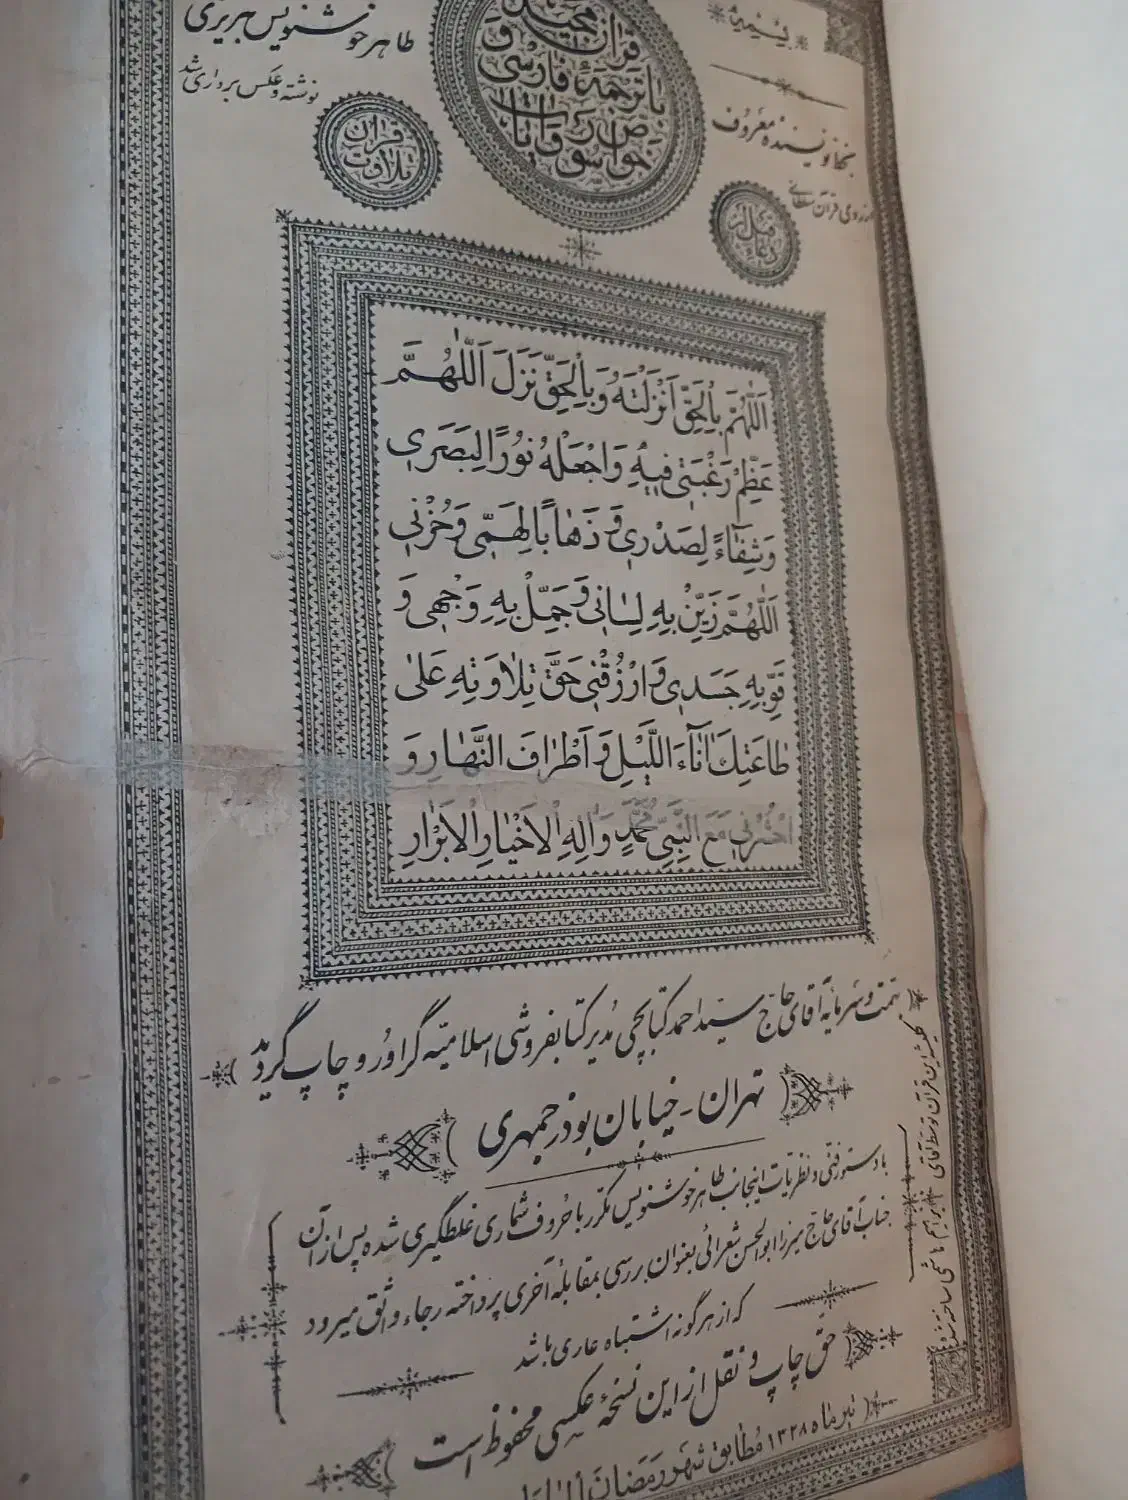 قرآن مجید
با ترجمهٔ فارسی و
خواص سور و آیات
طاهر خوشنویس تبریزی
نوشته و عکس برداری شد
نویسنده معروف
از روی قرآن سلطانی
تلاوت قرآن
اَللّٰهُمَّ بِالْحَقِّ اَنْزَلْتَهُ وَبِالْحَقِّ نَزَلَ اَللّٰهُمَّ
عَظِّمْ رَغْبَتی فیهِ وَاجْعَلْهُ نُورًا لِبَصَری
وَشِفٰٓاءً لِصَدْری وَ ذَهٰابًا لِهَمّی وَحُزْنی
اَللّٰهُمَّ زَیِّنْ بِهِ لِسٰانی وَ جَمِّلْ بِهِ وَجْهی وَ
قَوِّ بِهِ جَسَدی وَ ارْزُقْنی حَقَّ تِلٰاوَتِهِ عَلٰی
طٰاعَتِكَ اٰنٰٓاءَ اللَّیْلِ وَ اَطْرٰافَ النَّهٰارِ وَ
احْشُرْنی مَعَ النَّبِیِّ مُحَمَّدٍ وَاٰلِهِ الْاَخْیٰارِ الْاَبْرٰارِ
بهمت و سرمایه آقای حاج سید احمد کتابچی مدیر کتابفروشی اسلامیّه گراور و چاپ گردید
تهران - خیابان بوذرجمهری
با دستور فنی و نظریات اینجانب طاهر خوشنویس مکرر با حروف شماری غلطگیری شده پس از آن
جناب آقای حاج میرزا ابوالحسن شعرانی بعنوان بررسی بمقابله آخری پرداخته رجاء واثق میرود
که از هر گونه اشتباه عاری باشد
حق چاپ و نقل از این نسخهٔ عکسی محفوظ است
تیر ماه ۱۳۲۸ مطابق شهر رمضان المبارک
کلیشه این قرآن توسط آقای ابراهیم هاشمی ساخته شد